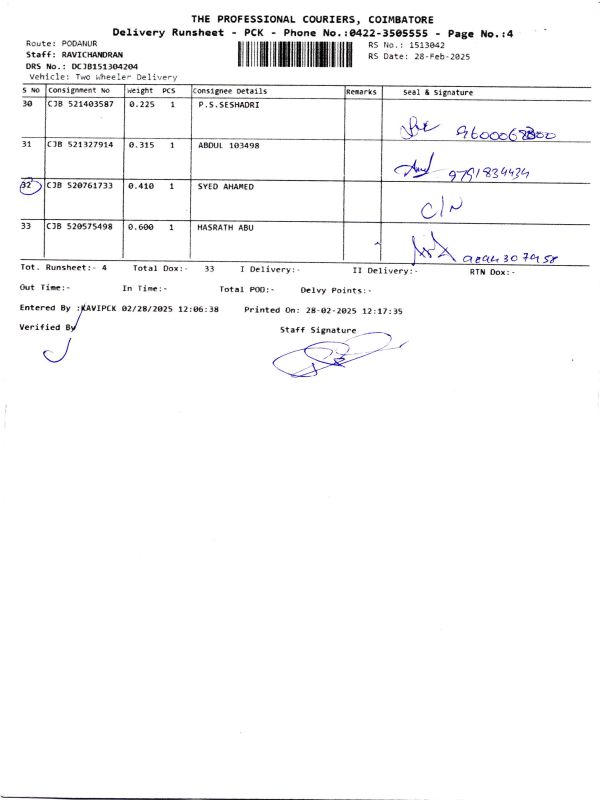 THE PROFESSIONAL COURIERS, COIMBATORE
Delivery Runsheet - PCK - Phone No.:0422-3505555 - Page No.:4
Route: PODANUR RS No.: 1513042
Staff: RAVICHANDRAN RS Date: 28-Feb-2025
DRS No.: DCJB151304204
Vehicle: Two Wheeler Delivery
S No Consignment No Weight PCS Consignee Details Remarks Seal & Signature
30 CJB 521403587 0.225 1 P.S.SESHADRI
31 CJB 521327914 0.315 1 ABDUL 103498
9791834434
32 CJB 520761733 0.410 1 SYED AHAMED
C/N
33 CJB 520575498 0.600 1 HASRATH ABU
Tot. Runsheet:- 4 Total Dox:- 33 I Delivery:- II Delivery:- RTN Dox:-
Out Time:- In Time:- Total POD:- Delvy Points:-
Entered By :KAVIPCK 02/28/2025 12:06:38 Printed On: 28-02-2025 12:17:35
Verified By Staff Signature